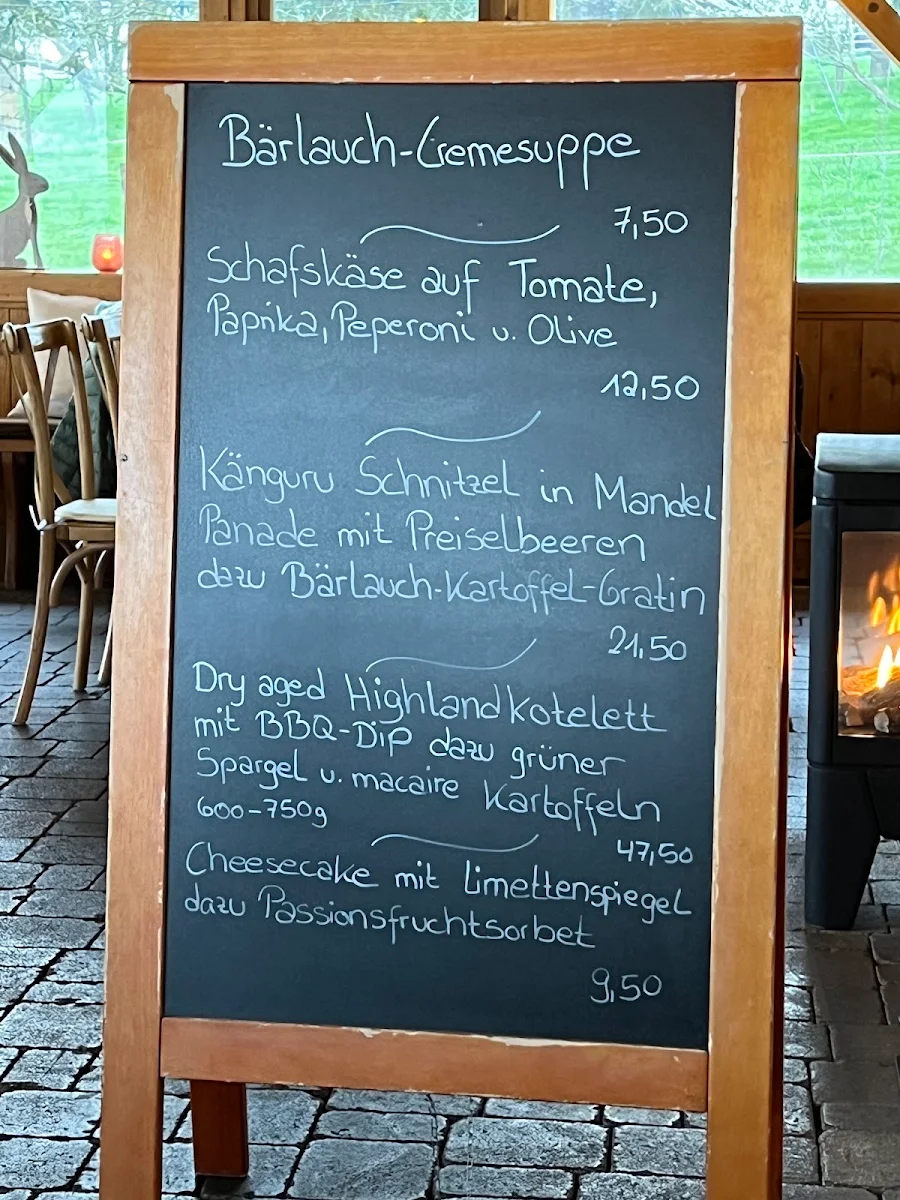 Bärlauch-Cremesuppe
7,50
Schafskäse auf Tomate,
Paprika, Peperoni u. Olive
12,50
Känguru Schnitzel in Mandel
Panade mit Preiselbeeren
dazu Bärlauch-Kartoffel-Gratin
21,50
Dry aged Highlandkotelett
mit BBQ-Dip dazu grüner
Spargel u. macaire Kartoffeln
600-750g
47,50
Cheesecake mit Limettenspiegel
dazu Passionsfruchtsorbet
9,50